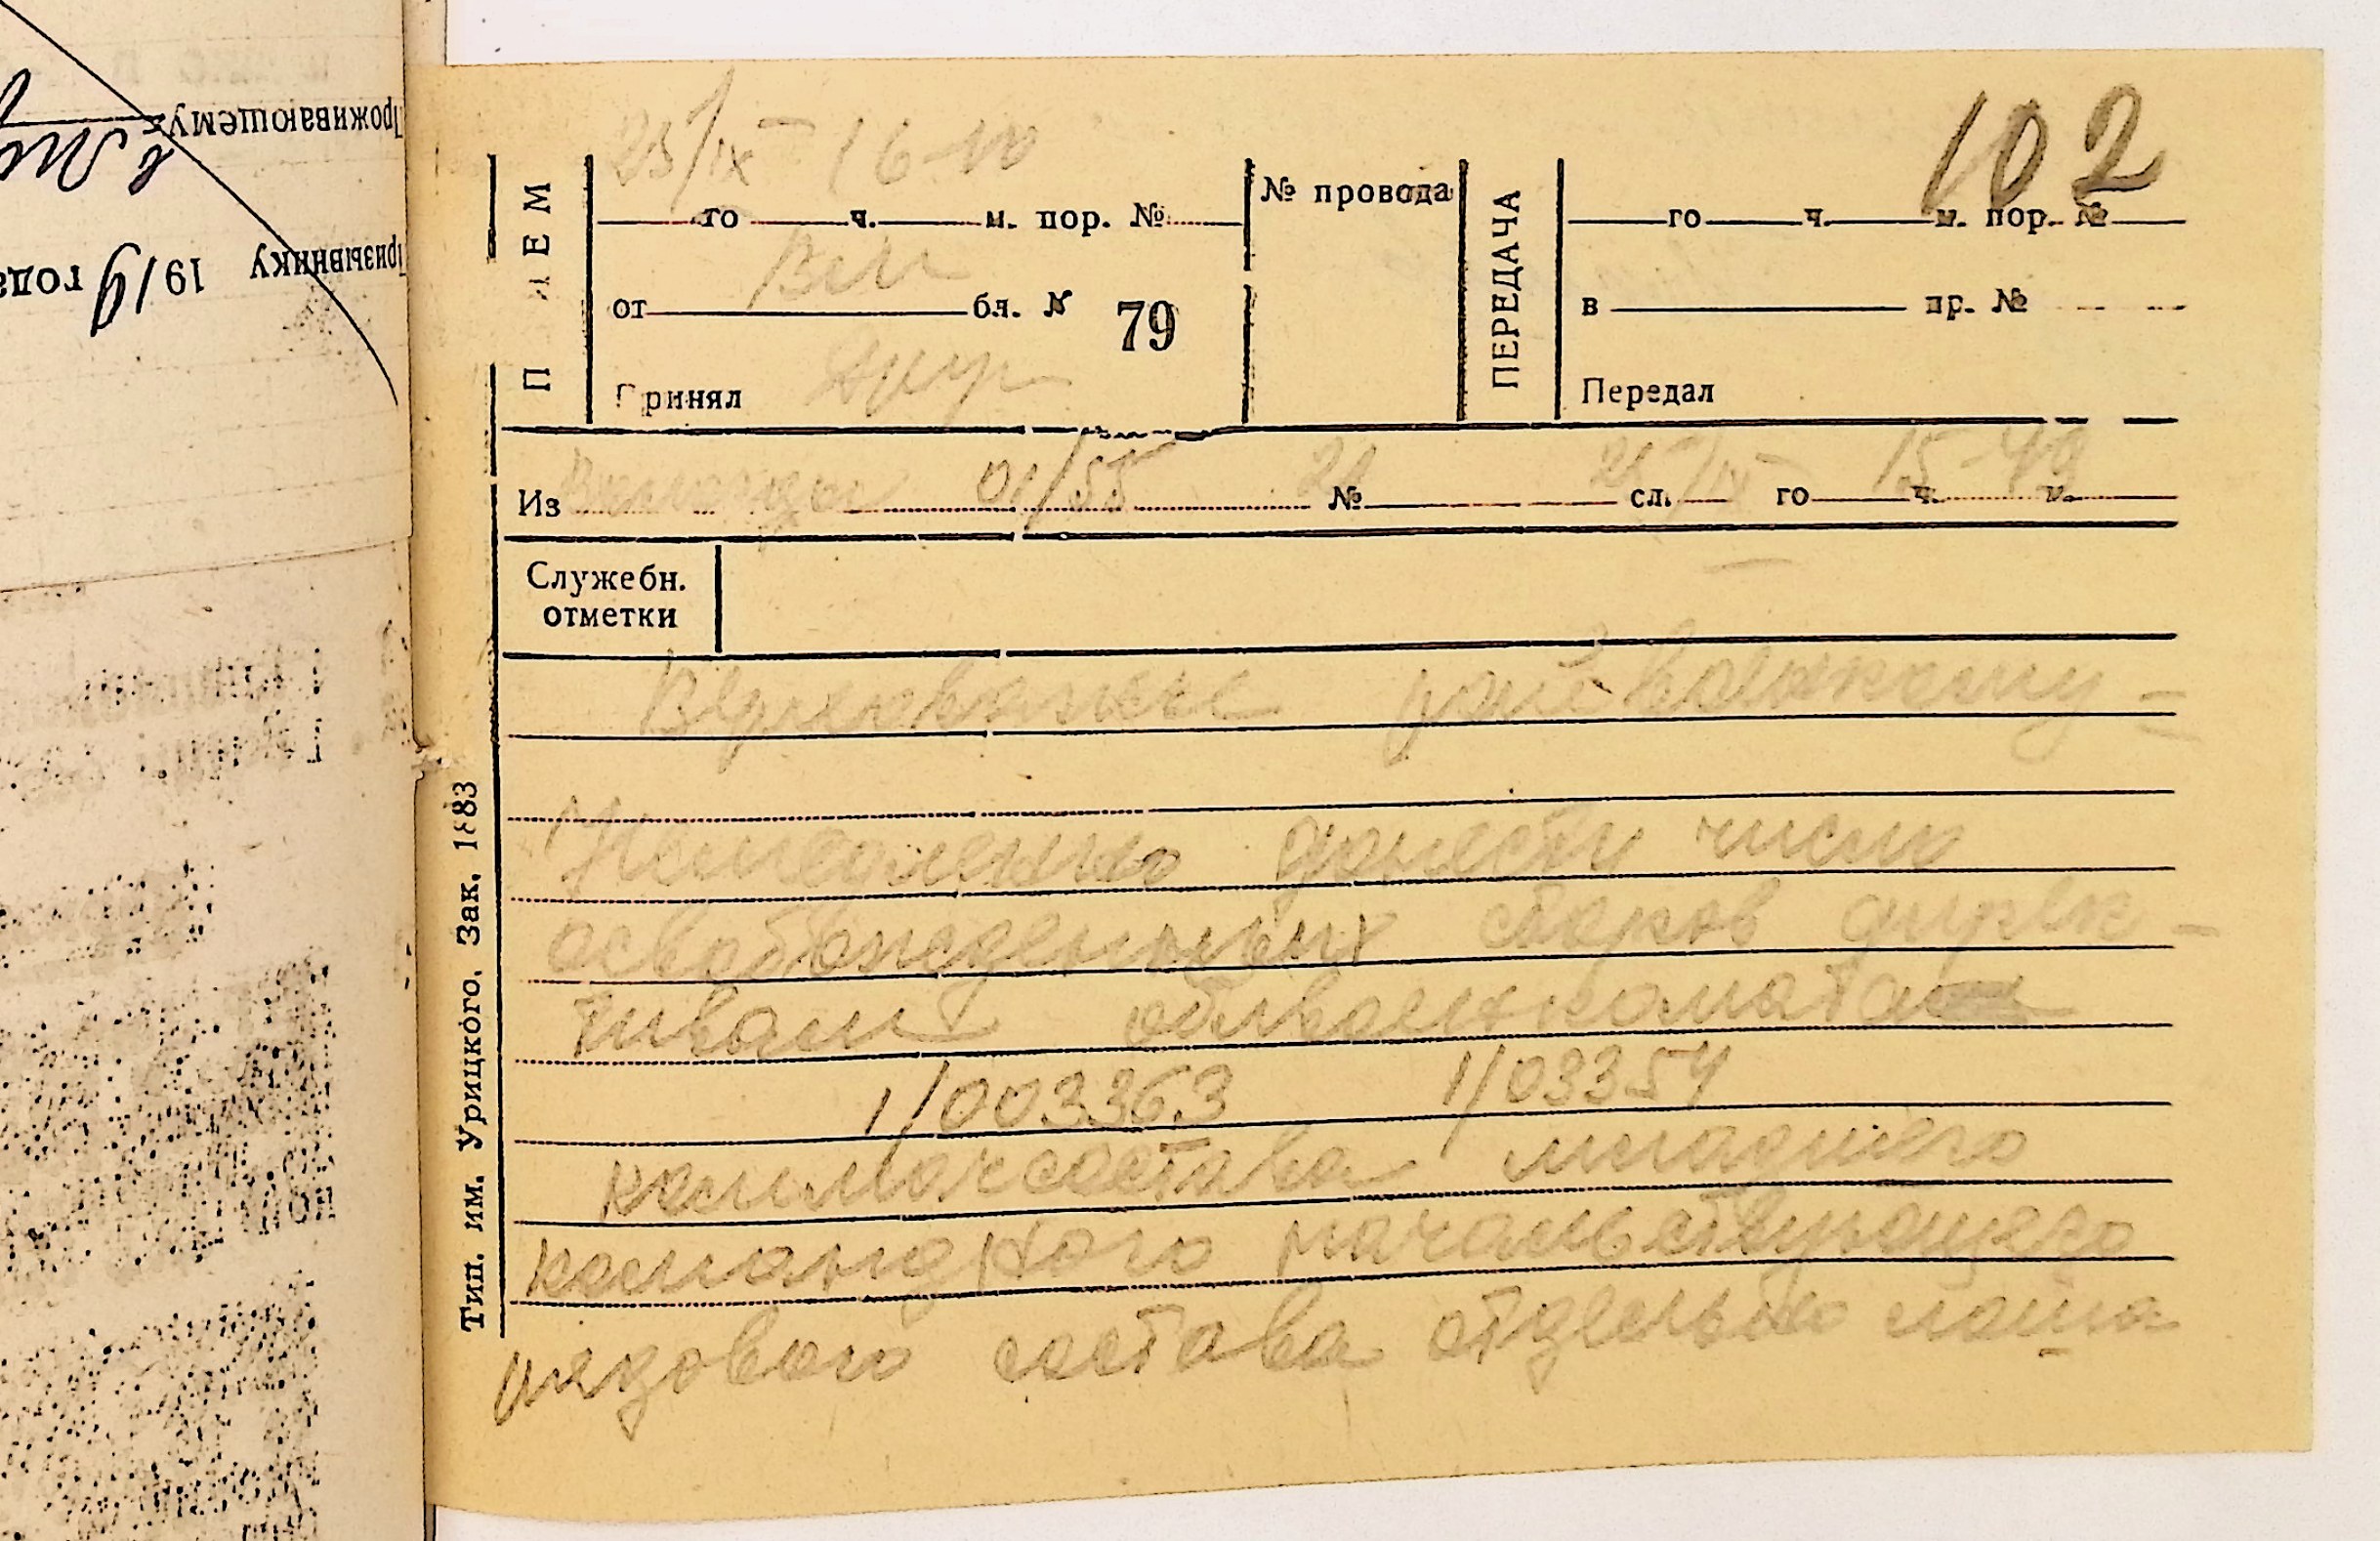 Проживающему
Призывнику 1919 года
102
25/IX 16-10
ПРИЕМ
го ч. м. пор. №
№ провода
ПЕРЕДАЧА
го ч. м. пор. №
от Влг бл. № 79
в пр. №
Принял
Передал
Из Вологды 01/55 21 № сл. 25/IX го 15 ч. 49 м.
Служебн.
отметки
райвоенкому =
Немедленно донести число
освобожденных сборов дирек-
тивам облвоенкомата
1/003363 1/03354
комначсостава младшего
командного начальствующего
рядового состава отдельно
Тип. им. Урицкого. Зак. 1883